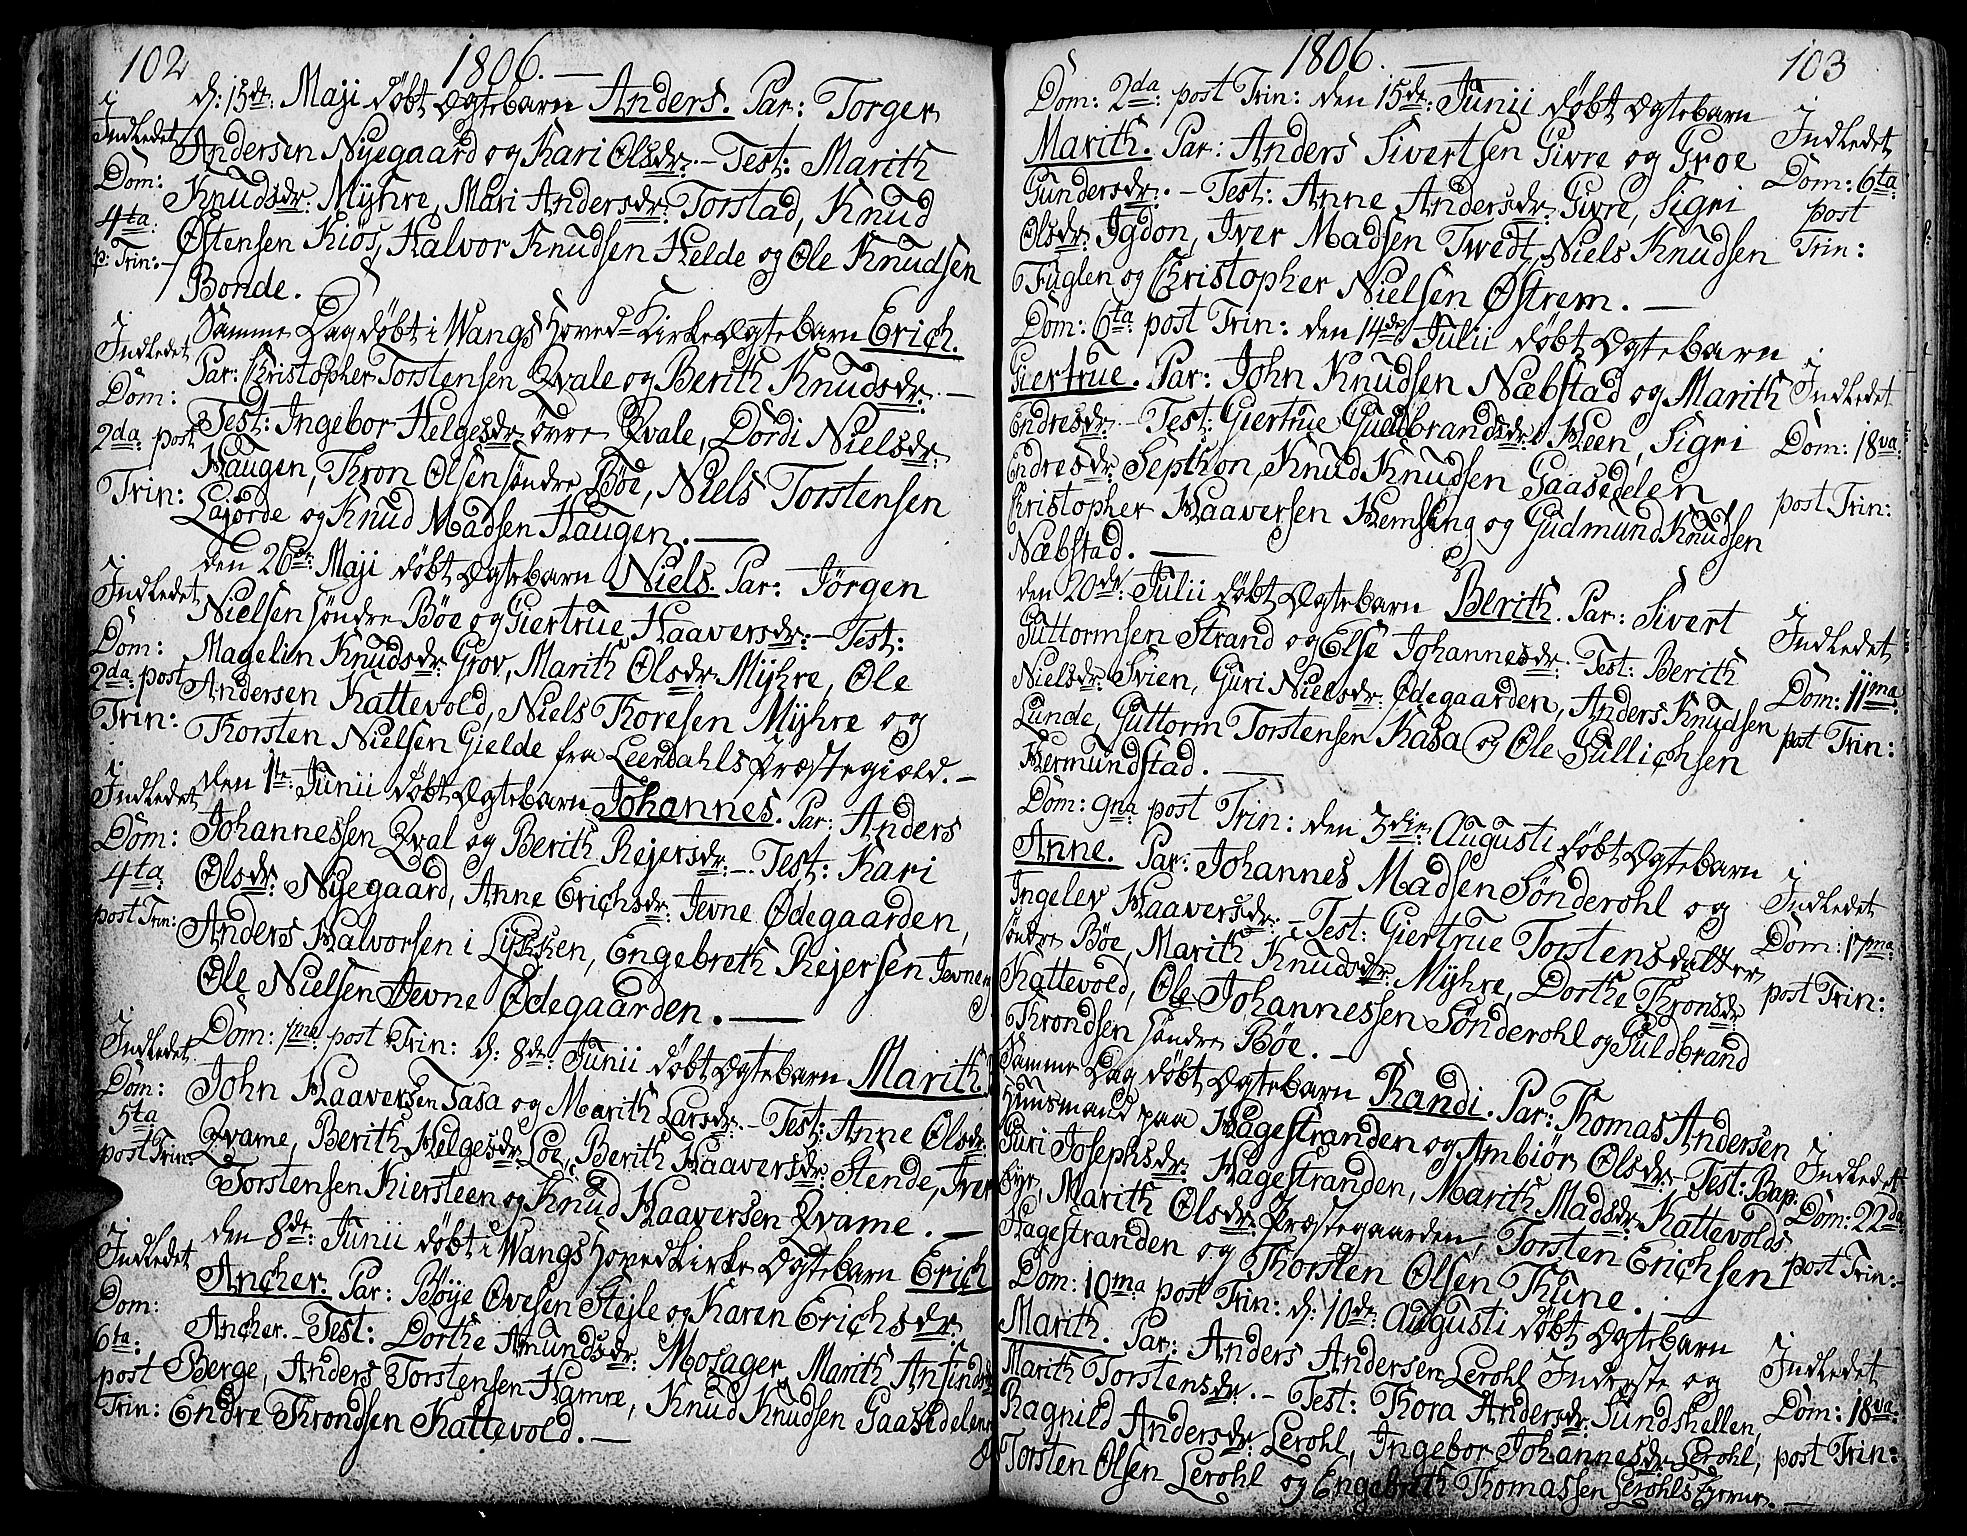 102 1806. —
d: 15de: Maji døbt Ægtebarn Anders. Par: Torger
Andersen Nyegaard og Kari Olsdr: – Test: Marith
Knudsdr: Myhre, Mari Andersdr: Torstad, Knud
Østensen Kiøs, Halvor Knudsen Helde og Ole Knudsen
Bonde.
Indledet
Dom:
4ta
p: Trin: –
Samme Dag døbt i Wangs Hoved Kirke Ægtebarn Erich.
Par: Christopher Torstensen Qvale og Berith Knudsdr: –
Test: Ingebor Helgesdr: øvre Qvale, Dordi Nielsdr:
Haugen, Thron Olsen søndre Bøe, Niels Torstensen
Lajorde og Knud Madsen Haugen. —
Indledet
Dom:
2da post
Trin:
den 26de: Maji døbt Ægtebarn Niels. Par: Jörgen
Nielsen søndre Bøe og Giertrue Haaversdr: – Test:
Magelin Knudsdr: Grov, Marith Olsdr: Myhre, Ole
Andersen Kattevold, Niels Thoresen Myhre og
Thorsten Nielsen Gielde fra Leerdahls Præstegiæld. –
Indledet
Dom:
2da: post
Trin:
den 1te: Junii døbt Ægtebarn Johannes. Par: Anders
Johannessen Qval og Berith Rejersdr: – Test: Kari
Olsdr: Nyegaard, Anne Erichsdr: Jevne Ødegaarden,
Anders Halvorsen i Lykken, Engebreth Rejersen Jevne,
Ole Nielsen Jevne Ødegaarden. —
Indledet
Dom:
4ta
post Trin:
Dom: 1ma post Trin: d: 8de: Junii døbt Ægtebarn Marith.
John Haaversen Sasa og Marith Larsdr: – Test: Anne Olsdr:
Qvame, Berith Helgesdr: Loe, Berith Haaversdr: Stende, Iver
Torstensen Kiersteen og Knud Haaversen Qvame. —
Indledet
Dom:
5ta
post Trin:
den 8de: Junii døbt i Wangs Hoved Kirke Ægtebarn Erich
Ancher. Par: Bøye Ovesen Stejle og Karen Erichsdr:
Ancher. – Test: Dorthe Amundsdr: Mosager, Marith Anfindsdr:
Berge, Anders Torstensen Hamre, Knud Knudsen Gaasedelen,
Endre Throndsen Kattevold. —
Indledet
Dom:
6ta:
post
Trin:
1806. — 103
Dom: 2da: post Trin: den 15de: Junii døbt Ægtebarn
Marith. Par: Anders Sivertsen Givre og Groe
Gundersdr: – Test: Anne Andersdr: Givre, Sigri
Olsdr: Igdon, Iver Madsen Twedt, Niels Knudsen
Fuglen og Christopher Nielsen Østrem. —
Indledet
Dom: 6ta
post
Trin:
Dom: 6ta: post Trin: den 14de Julii døbt Ægtebarn
Giertrue. Par: John Knudsen Næbstad og Marith
Endresdr: – Test: Giertrue Gudbrandsdr: Heen, Sigri
Endresdr: Septhon, Knud Knudsen Gaasedelen
Christopher Haaversen Hemsing og Gudmund Knudsen
Næbstad. —
Indledet
Dom: 18va:
post Trin:
den 20de: Julii døbt Ægtebarn Berith. Par: Sivert
Guttormsen Strand og Else Johannesdr: Test: Berith
Nielsdr: Svien, Guri Nielsdr: Ødegaarden, Anders Knudsen
Lunde, Guttorm Torstensen Kasa og Ole Gullichsen
Hermundstad. —
Indledet
Dom: 11ma:
post Trin:
Dom: 9na post Trin: den 3die Augusti døbt Ægtebarn
Anne. Par: Johannes Madsen Sønderohl og
Ingelev Haaversdr: – Test: Giertrue Torstensdatter
søndre Bøe, Marith Knudsdr: Myhre, Dorthe Thronsdr:
Kattevold, Ole Johannessen Sønderohl og Guldbrand
Throndsen søndre Bøe. —
Indledet
Dom: 17ma
post Trin:
Samme Dag døbt Ægtebarn Randi. Par: Thomas Andersen
Huusmand paa Hagestranden og Ambiør Olsdr: – Test: Bap:
Guri Josephsdr: Hagestranden, Marith Madsdr: Kattevolds
Eye, Marith Olsdr: Præstegaarden, Torsten Erichsen
Hagestranden og Thorsten Olsen Thune. —
Indledet
Dom: 22da
post Trin: –
Dom: 10ma post Trin: d: 10de: Augusti døbt Ægtebarn
Marith. Par: Anders Andersen Lerohl Inderste og
Marith Torstensdr. – Test: Thora Andersdr: Sundshellen,
Ragnild Andersdr: Lerohl, Ingebor Johannesdr: Lerohl,
Torsten Olsen Lerohl og Engebreth Thomassen Lerohls
Indledet
Dom: 18va:
post Trin: